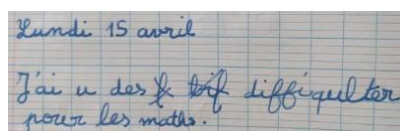 Lundi 15 avril
J'ai u des diffiqulter
pour les maths.